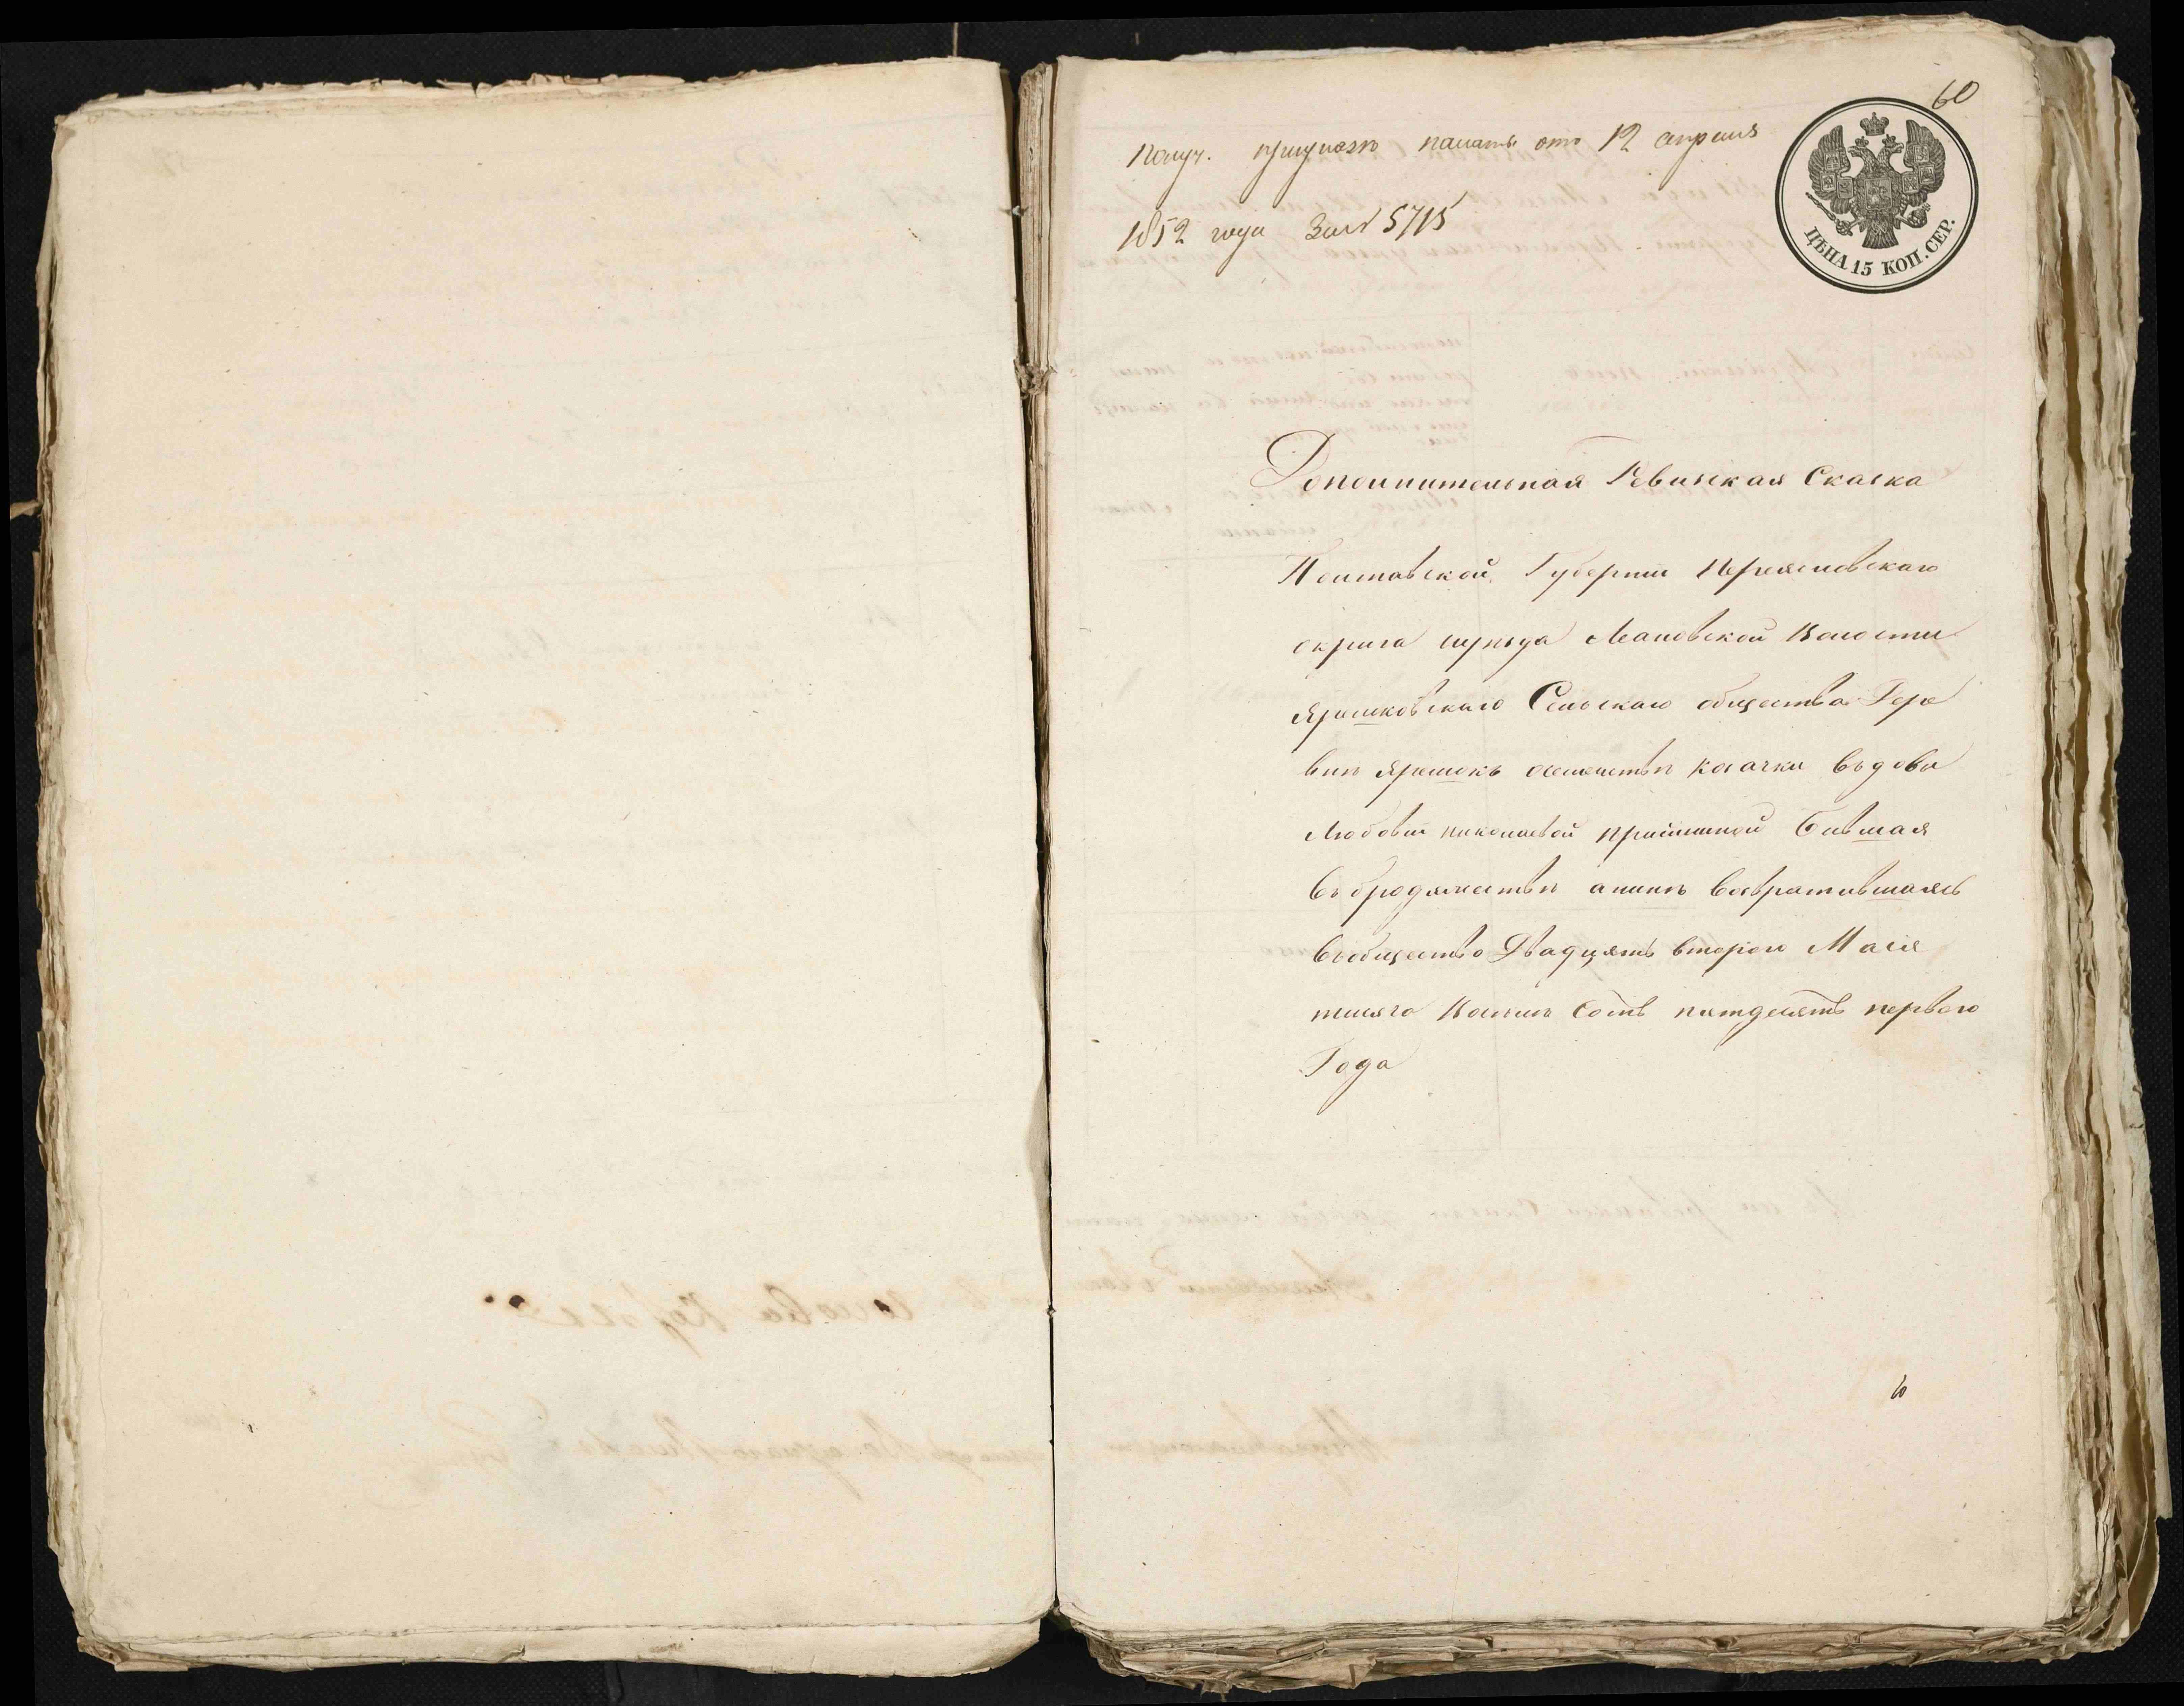 60
Получ. при указѣ палаты отъ 12 апрѣля
1852 года за № 5715
ЦѢНА 15 КОП. СЕР.
Дополнительная Ревизская Сказка
Полтавской Губерніи Переясловскаго
округа иуѣзда Леановской Волости
Ярешковскаго Сельскаго общества Дере
внѣ Ярешокъ осемействѣ казачки въдовы
Любовіи николаевой Бывшая
въбродяжествѣ анынѣ возвратившаясъ
вобщество Двадцять второи Маія
тысяго Восимъ Сотъ пятдесятъ первого
Года